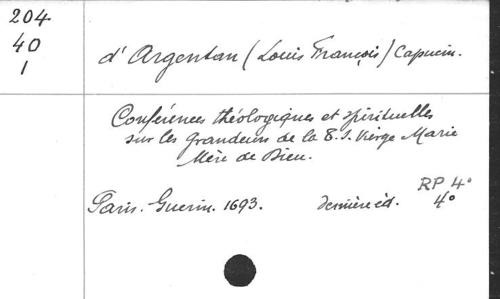 204
40
1
d'Argentan (Louis François) Capucin.
Conférences théologiques et spirituelles
sur les grandeurs de la T. S. Vierge Marie
Mère de Dieu.
RP 4°
Paris. Guerin. 1693. dernière éd. 4°